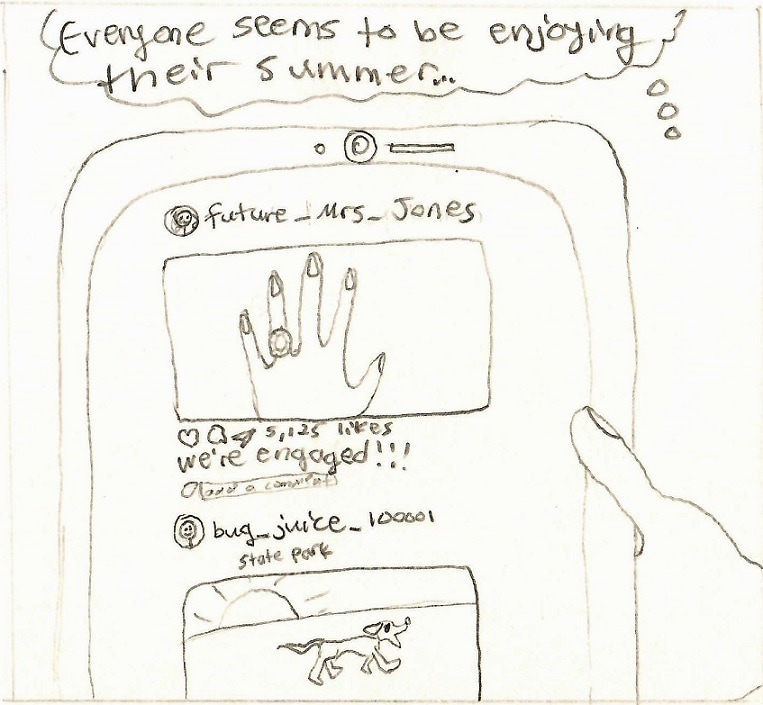 Everyone seems to be enjoying
their summer...
future_Mrs_Jones
5,125 likes
we're engaged!!!
add a comment
bug_juice_100001
state park